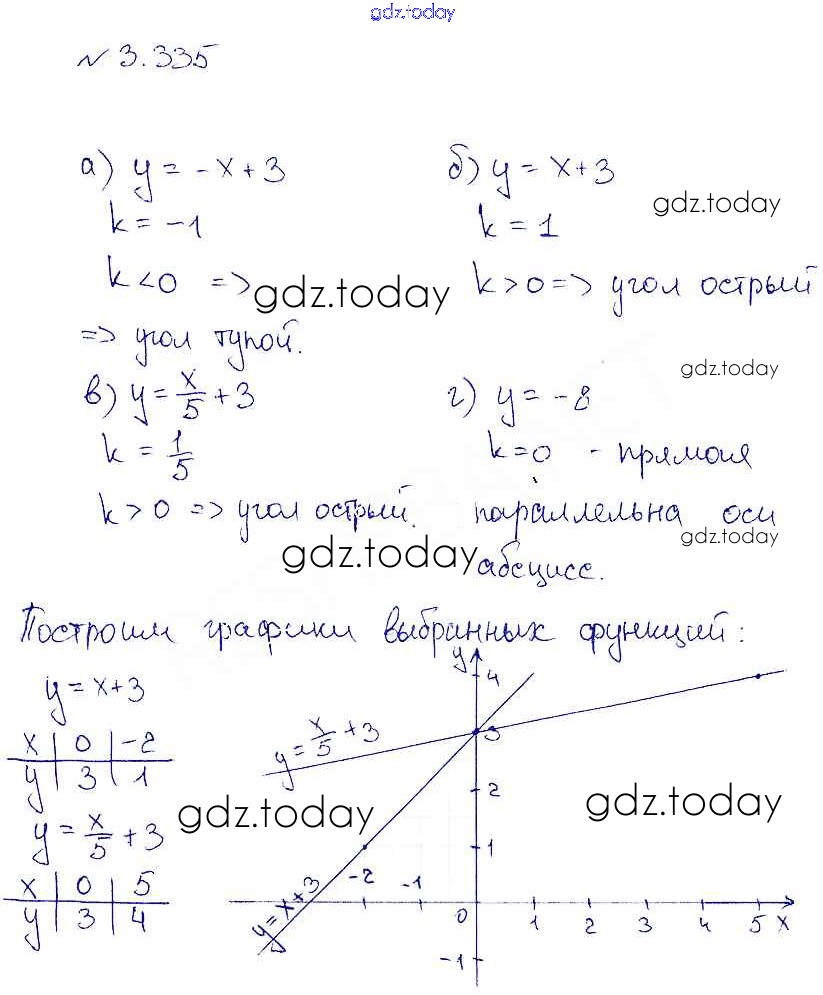 gdz.today
№ 3.335
а) y = -x + 3
k = -1
k < 0 =>
=> угол тупой.
б) y = x + 3
k = 1
k > 0 => угол острый
gdz.today
gdz.today
в) y = x/5 + 3
k = 1/5
k > 0 => угол острый.
г) y = -8
k = 0 - прямая
параллельна оси
абсцисс.
gdz.today
gdz.today
gdz.today
Построим графики выбранных функций:
y = x + 3
x | 0 | -2
y | 3 | 1
y = x/5 + 3
x | 0 | 5
y | 3 | 4
gdz.today
gdz.today
y
4
3
2
1
-2 -1
0 1 2 3 4 5 x
-1
y = x/5 + 3
y = x + 3